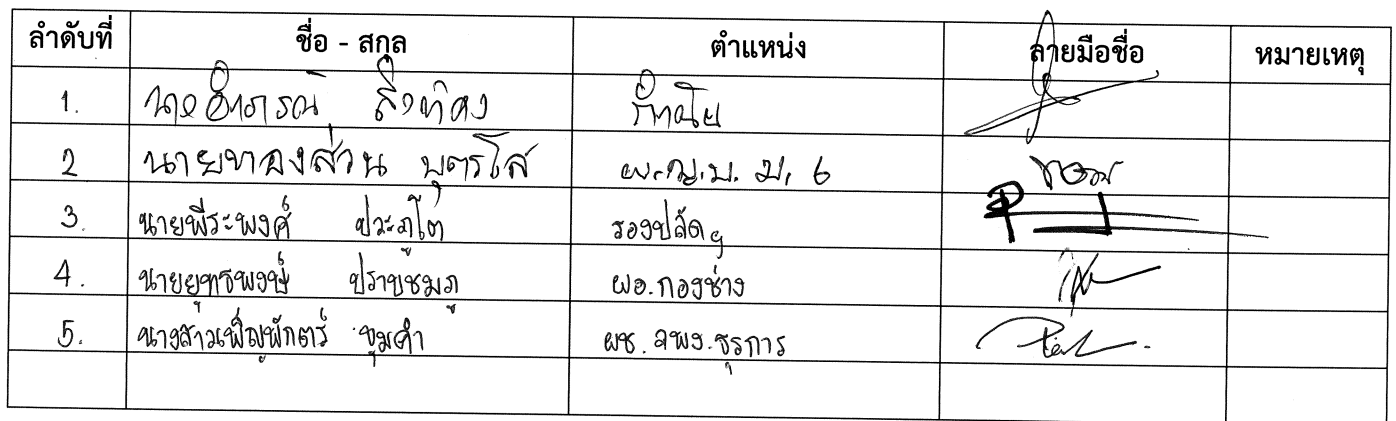 ลำดับที่ ชื่อ - สกุล ตำแหน่ง ลายมือชื่อ หมายเหตุ
1.
2 นายทองส่วน บุตรโส ผ.ญ.บ. ม. 6
3. นายพีระพงศ์ ปะระภูโต รองปลัดฯ
4. นายยุทธพงษ์ ปราบชมภู ผอ.กองช่าง
5. นางสาวเพ็ญพักตร์ ชุมคำ ผช. จพง.ธุรการ